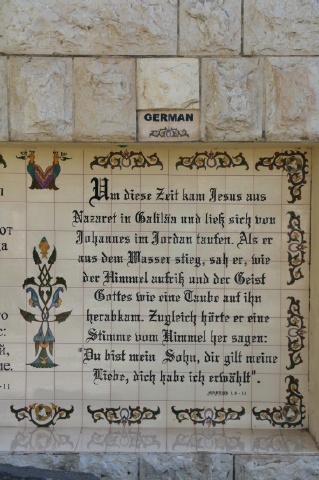 GERMAN
Um diese Zeit kam Jesus aus
Nazaret in Galiläa und ließ sich von
Johannes im Jordan taufen. Als er
aus dem Wasser stieg, sah er, wie
der Himmel aufriß und der Geist
Gottes wie eine Taube auf ihn
herabkam. Zugleich hörte er eine
Stimme vom Himmel her sagen:
"Du bist mein Sohn, dir gilt meine
Liebe, dich habe ich erwählt".
1, 9 - 11